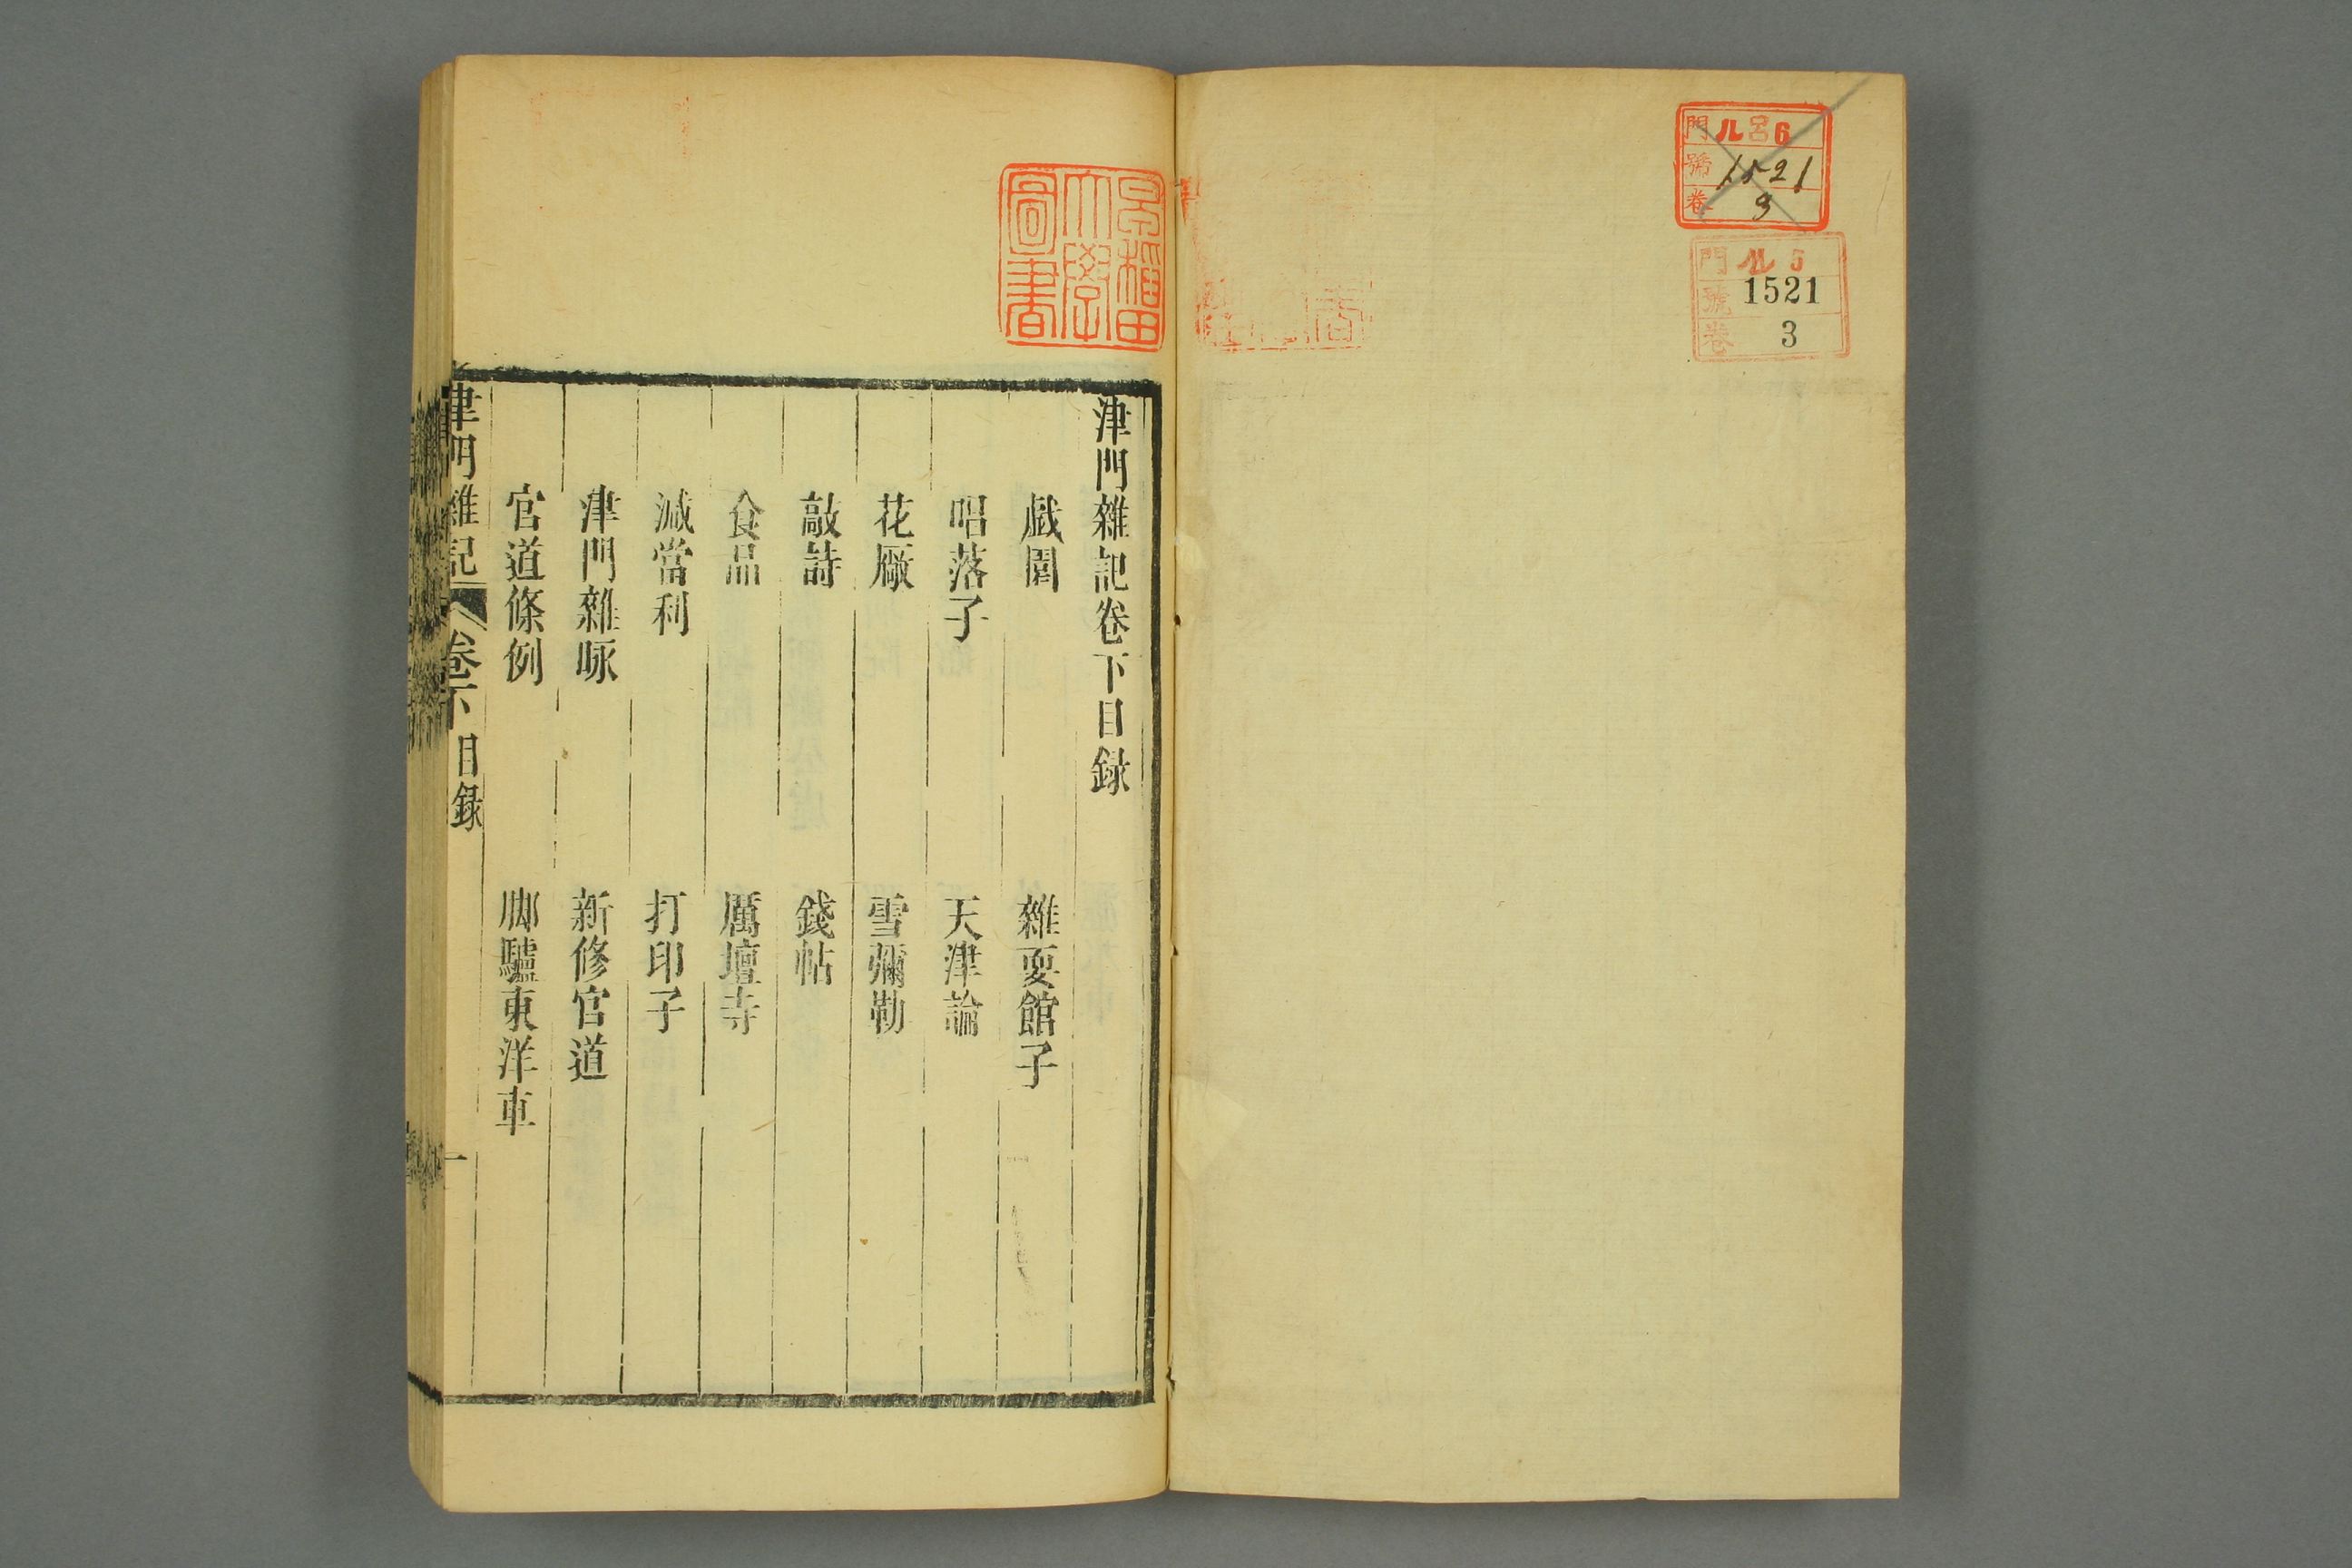 門 ル 呂 6
號 1521
卷 3
門 ル 5
號 1521
卷 3
早稲田
大學
圖書
津門雜記卷下目録
戯園 雜耍館子
唱落子 天津論
花厰 雪彌勒
敲詩 錢帖
食品 厲壇寺
減當利 打印子
津門雜咏 新修官道
官道條例 脚驢東洋車
津門雜記 卷下目録 一